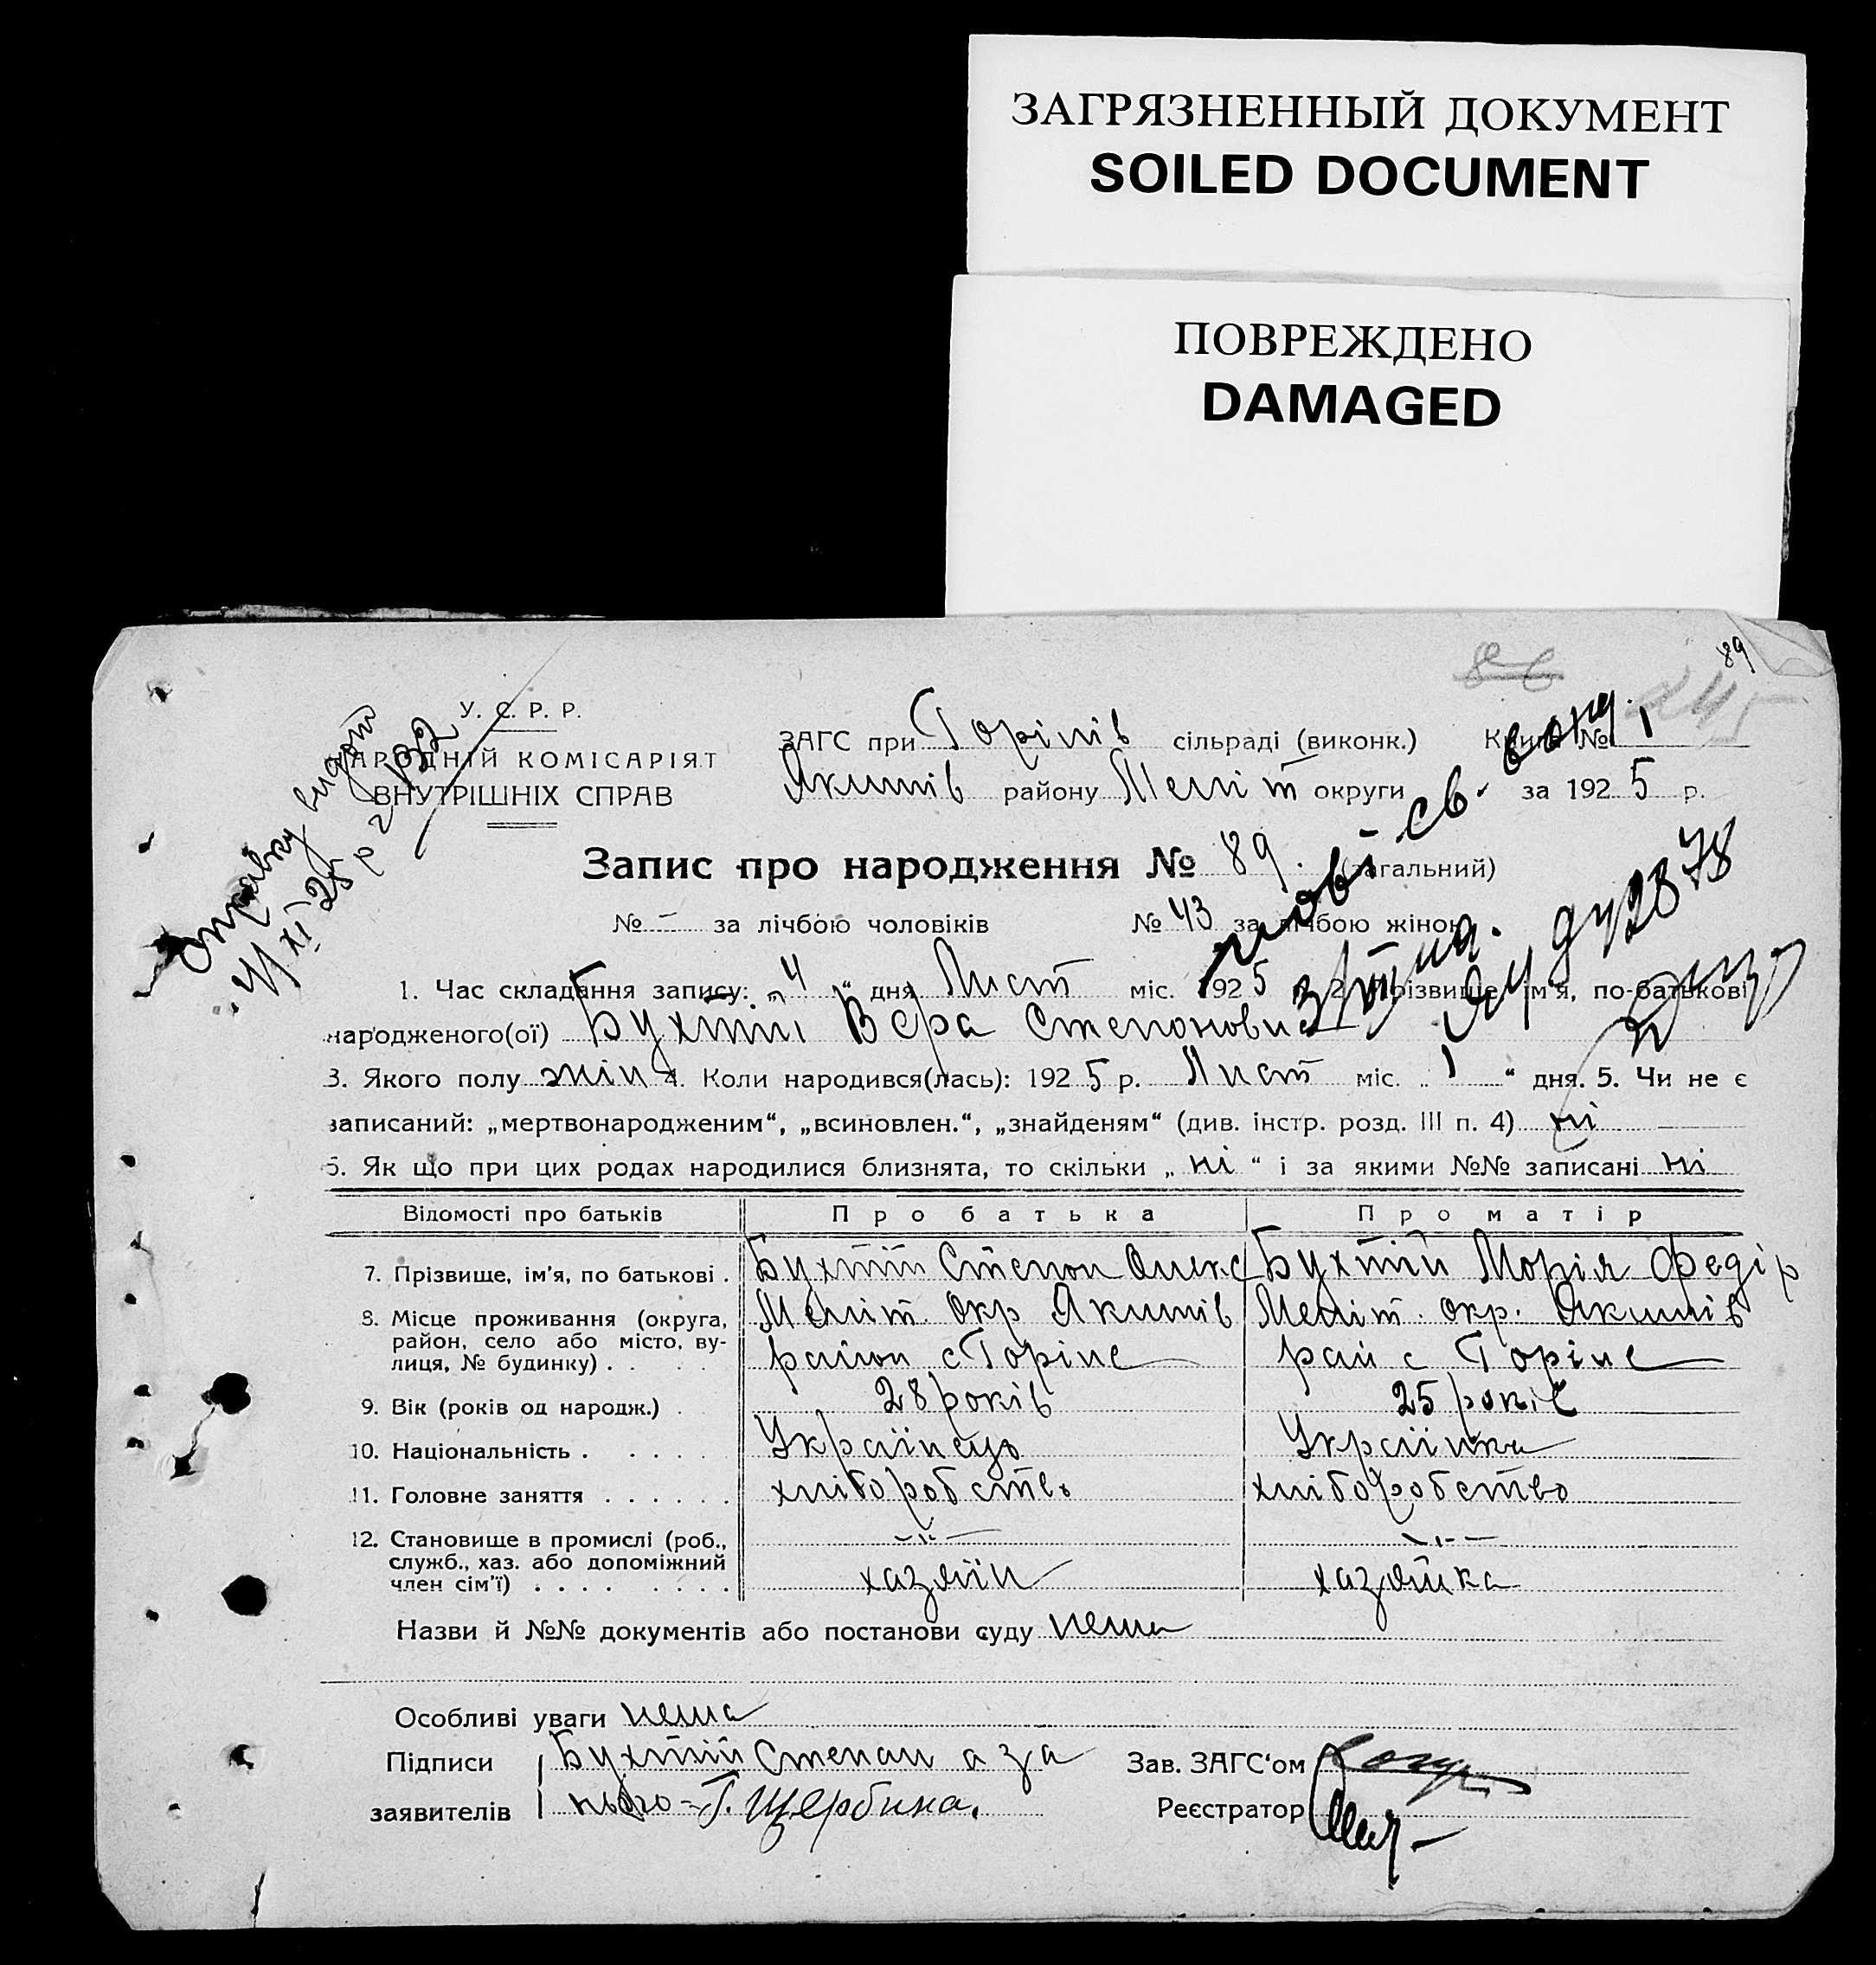 ЗАГРЯЗНЕННЫЙ ДОКУМЕНТ
SOILED DOCUMENT
ПОВРЕЖДЕНО
DAMAGED
89
245
У. С. Р. Р.
НАРОДНІЙ КОМІСАРІЯТ
ВНУТРІШНІХ СПРАВ
Справку видат
4/XI 25 р 132
ЗАГС при Горілів сільраді (виконк.) Книга № 1
Якимів району Меліт округи за 1925 р.
Запис про народження № 89. (загальний)
№ – за лічбою чоловіків № 43 за лічбою жінок
1. Час складання запису: „4“ дня Лист міс. 1925 2. Прізвище, ім'я, по-батькові
народженого(ої) Бухтій Вєра Степоновн
3. Якого полу жін 4. Коли народився(лась): 1925 р. Лист міс. „1“ дня. 5. Чи не є
записаний: „мертвонародженим“, „всиновлен.“, „знайденям“ (див. інстр. розд. III п. 4) ні
6. Як що при цих родах народилися близнята, то скільки „ні“ і за якими №№ записані ні
Відомості про батьків Про батька Про матір
7. Прізвище, ім'я, по батькові . Бухтій Степон Олекс Бухтій Морія Федір
8. Місце проживання (округа, район, село або місто, вулиця, № будинку) . Меліт. Окр Якимів Меліт. окр. Якимів
район с Горіле рай с Горіле
9. Вік (років од народж.) . 28 років 25 років
10. Національність . Українець Українка
11. Головне заняття . хліборобство хліборобство
12. Становище в промислі (роб., служб., хаз. або допоміжний член сім'ї) . хазяїн хазяйка
Назви й №№ документів або постанови суду нема
Особливі уваги нема
Підписи Бухтій Степан а за Зав. ЗАГС'ом
заявителів нього – Г. Щербина. Реєстратор